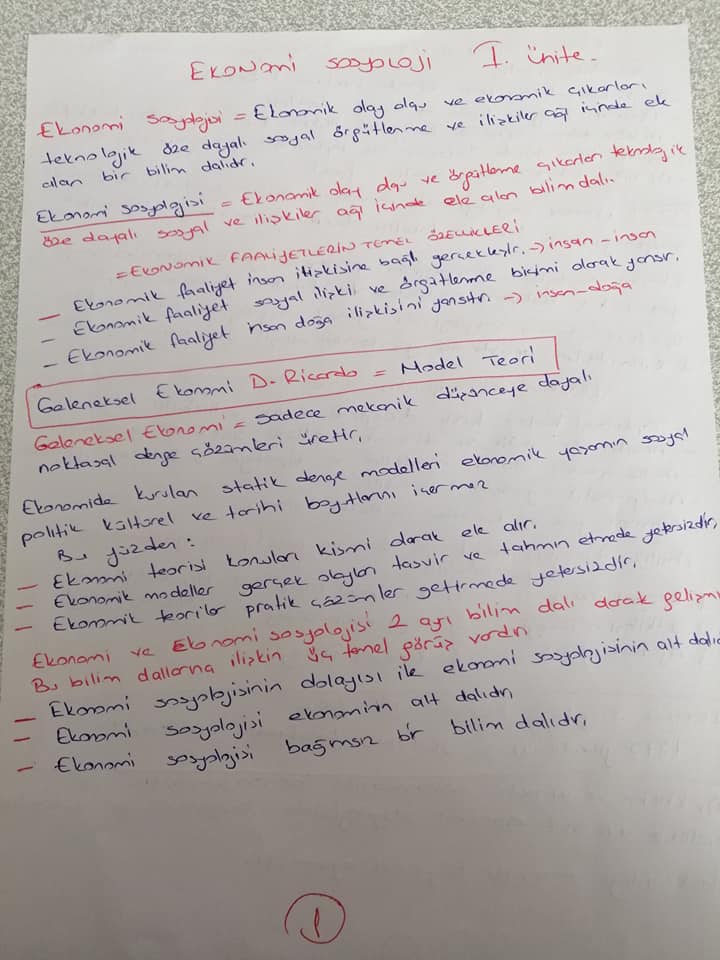 Ekonomi sosyoloji I. ünite.
Ekonomi sosyolojisi = Ekonomik olay olgu ve ekonomik çıkarları,
teknolojik öze dayalı sosyal örgütlenme ve ilişkiler ağı içinde ele
alan bir bilim dalıdır.
Ekonomi sosyolojisi = Ekonomik olay olgu ve örgütleme çıkarları teknolojik
öze dayalı sosyal ve ilişkiler ağı içinde ele alan bilim dalı.
=EKONOMİK FAALİYETLERİN TEMEL ÖZELLİKLERİ
— Ekonomik faaliyet insan ilişkisine bağlı gerçekleşir. → insan - insan
— Ekonomik faaliyet sosyal ilişki ve örgütlenme biçimi olarak yansır.
— Ekonomik faaliyet insan doğa ilişkisini yansıtır → insan-doğa
Geleneksel Ekonomi D. Ricardo = Model Teori
Geleneksel Ekonomi = Sadece mekanik düşünceye dayalı
noktasal denge çözümleri üretir.
Ekonomide kurulan statik denge modelleri ekonomik yaşamın sosyal
politik kültürel ve tarihi boyutlarını içermez
Bu yüzden :
— Ekonomi teorisi konuları kısmi olarak ele alır.
— Ekonomik modeller gerçek olayları tasvir ve tahmin etmede yetersizdir,
— Ekonomik teoriler pratik çözümler getirmede yetersizdir.
Ekonomi ve Ekonomi sosyolojisi 2 ayrı bilim dalı olarak gelişmi
Bu bilim dallarına ilişkin üç temel görüş vardır
— Ekonomi sosyolojisinin dolayısı ile ekonomi sosyolojisinin alt dalıdı
— Ekonomi sosyolojisi ekonominin alt dalıdır
— Ekonomi sosyolojisi bağımsız bir bilim dalıdır.
1